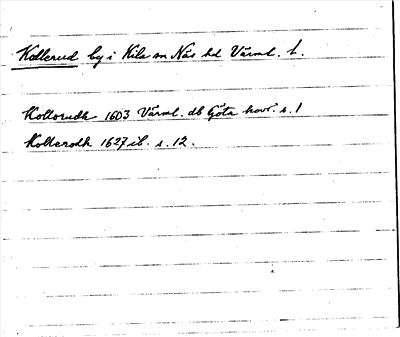 Kollerud by i Kila sn Näs hd Värml. l.
Kollorudh 1603 Värml. db Göta hovr. s. 1
Kollerodh 1627 ib. s. 12.